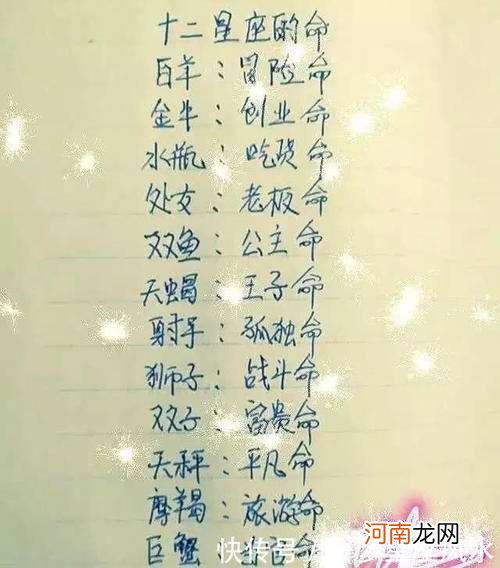 十二星座的命
百羊：冒险命
金牛：创业命
水瓶：吃货命
处女：老板命
双鱼：公主命
天蝎：王子命
射手：孤独命
狮子：战斗命
双子：富贵命
天秤：平凡命
摩羯：旅游命
巨蟹 命
快传号
河南龙网